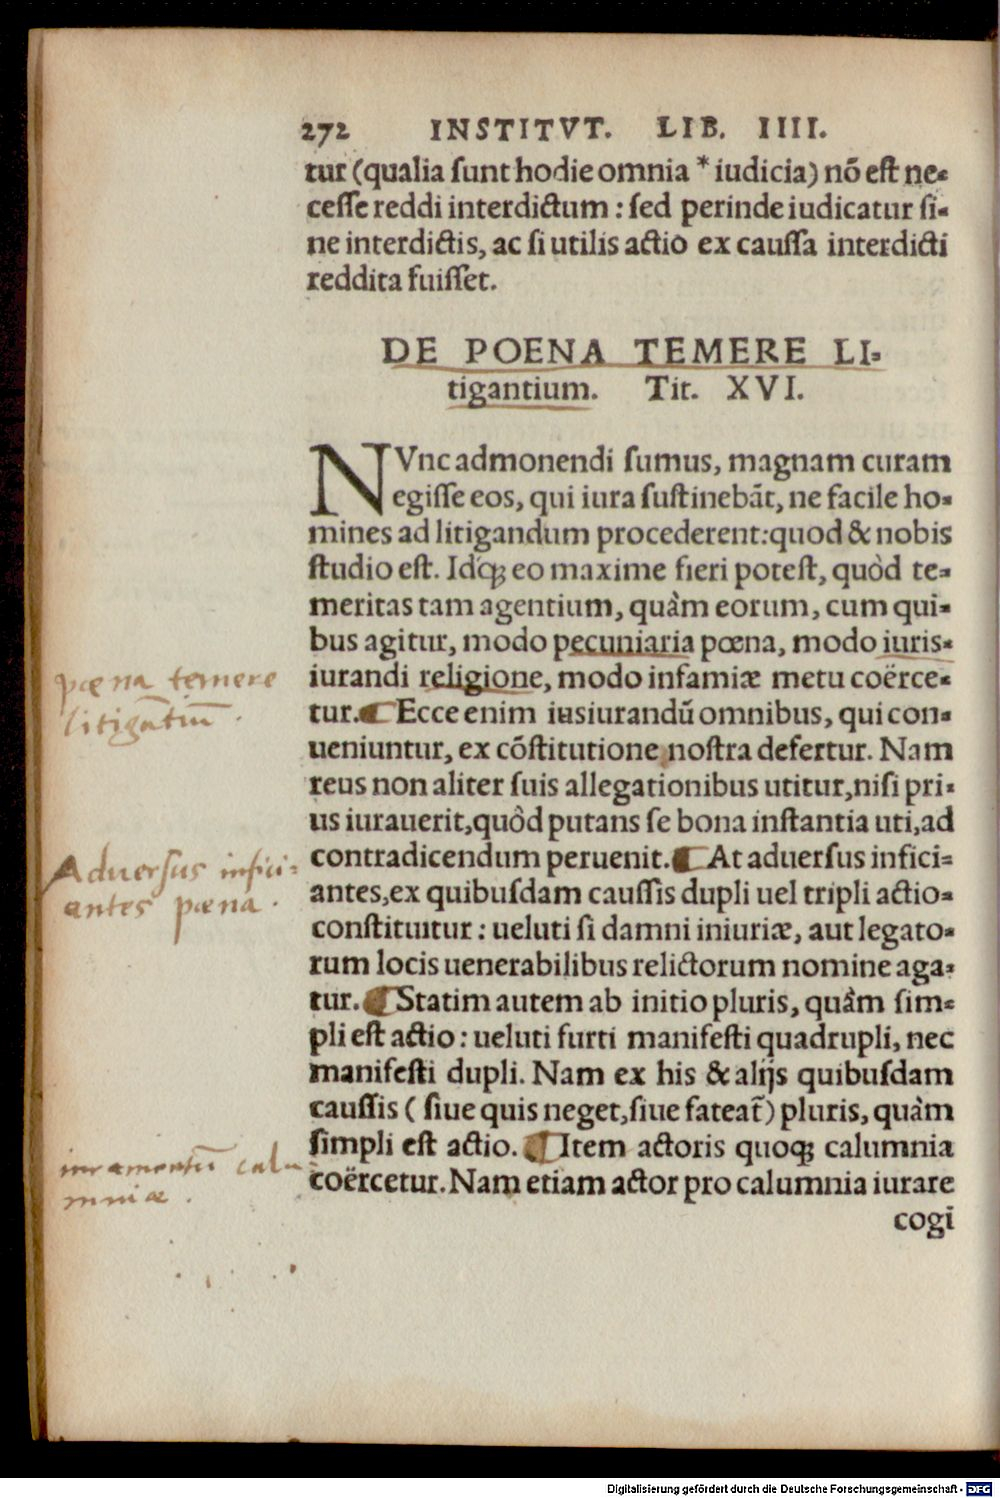 272 INSTITVT. LIB. IIII.
tur (qualia ſunt hodie omnia * iudicia) nõ eſt ne-
ceſſe reddi interdictum : ſed perinde iudicatur ſi-
ne interdictis, ac ſi utilis actio ex cauſſa interdicti
reddita fuiſſet.
DE POENA TEMERE LI-
tigantium. Tit. XVI.
NVnc admonendi ſumus, magnam curam
egiſſe eos, qui iura ſuſtinebãt, ne facile ho-
mines ad litigandum procederent: quod & nobis
ſtudio eſt. Idq́; eo maxime fieri poteſt, quòd te-
meritas tam agentium, quàm eorum, cum qui-
bus agitur, modo pecuniaria pœna, modo iuris-
iurandi religione, modo infamiæ metu coërce-
tur. ¶ Ecce enim iusiurandũ omnibus, qui con-
ueniuntur, ex cõſtitutione noſtra defertur. Nam
reus non aliter ſuis allegationibus utitur, niſi pri-
us iurauerit, quòd putans ſe bona inſtantia uti, ad
contradicendum peruenit. ¶ At aduerſus infici-
antes, ex quibuſdam cauſſis dupli uel tripli actio-
conſtituitur : ueluti ſi damni iniuriæ, aut legato-
rum locis uenerabilibus relictorum nomine aga-
tur. ¶ Statim autem ab initio pluris, quàm ſim-
pli eſt actio : ueluti furti manifeſti quadrupli, nec
manifeſti dupli. Nam ex his & alijs quibuſdam
cauſſis ( ſiue quis neget, ſiue fateat̃) pluris, quàm
ſimpli eſt actio. ¶ Item actoris quoq; calumnia
coërcetur. Nam etiam actor pro calumnia iurare
cogi
pœna temere
litigãtiũ .
Aduerſus infici-
antes pœna .
iuramentũ calu-
mniæ .
Digitalisierung gefördert durch die Deutsche Forschungsgemeinschaft - DFG